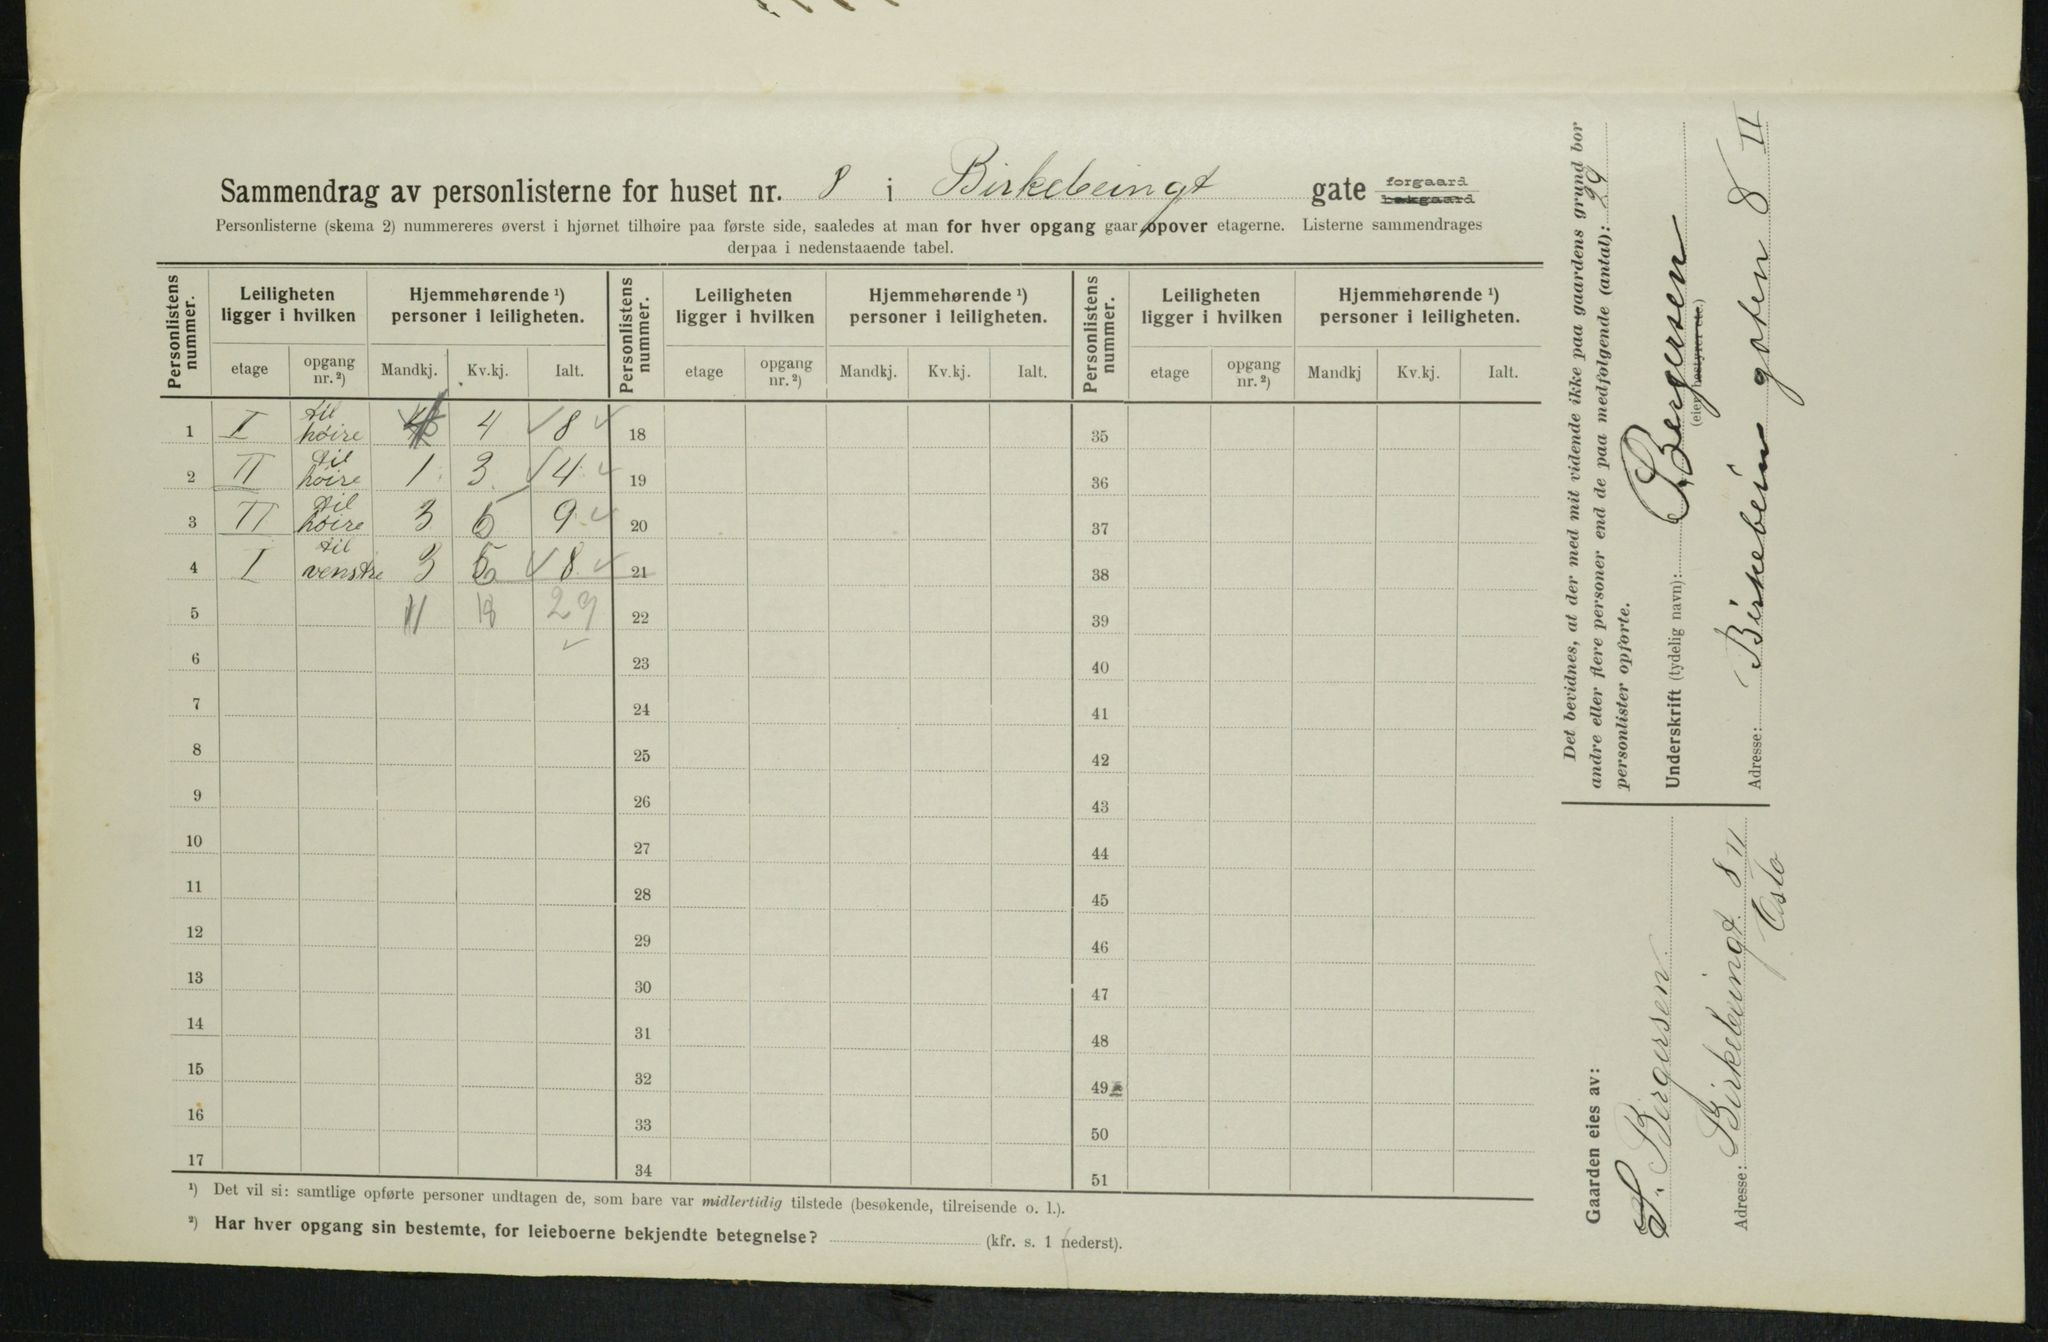 Sammendrag av personlisterne for huset nr. 8 i Birkebeingt gate forgaard bakgaard
Personlisterne (skema 2) nummereres øverst i hjørnet tilhøire paa første side, saaledes at man for hver opgang gaar opover etagerne. Listerne sammendrages
derpaa i nedenstaaende tabel.
Personlistens nummer. Leiligheten ligger i hvilken Hjemmehørende ¹) personer i leiligheten. Personlistens nummer. Leiligheten ligger i hvilken Hjemmehørende ¹) personer i leiligheten. Personlistens nummer. Leiligheten ligger i hvilken Hjemmehørende ¹) personer i leiligheten.
etage opgang nr. ²) Mandkj. Kv.kj. Ialt. etage opgang nr. ²) Mandkj. Kv.kj. Ialt. etage opgang nr. ²) Mandkj Kv.kj. Ialt.
1 I til høire 4 4 8 18 35
2 II til høire 1 3 4 19 36
3 II til høire 3 6 9 20 37
4 I til venstre 3 5 8 21 38
5 11 18 29 22 39
6 23 40
7 24 41
8 25 42
9 26 43
10 27 44
11 28 45
12 29 46
13 30 47
14 31 48
15 32 49
16 33 50
17 34 51
¹) Det vil si: samtlige opførte personer undtagen de, som bare var midlertidig tilstede (besøkende, tilreisende o. l.).
²) Har hver opgang sin bestemte, for leieboerne bekjendte betegnelse? (kfr. s. 1 nederst).
Det bevidnes, at der med mit vidende ikke paa gaardens grund bor
andre eller flere personer end de paa medfølgende (antal): 29
personlister opførte.
Underskrift (tydelig navn): S. Bergersen
(eier, bestyrer etc.)
Adresse: Birkebein gaten 8 II
Gaarden eies av:
S. Birgersen
Adresse: Birkebeingt. 8 II
Oslo